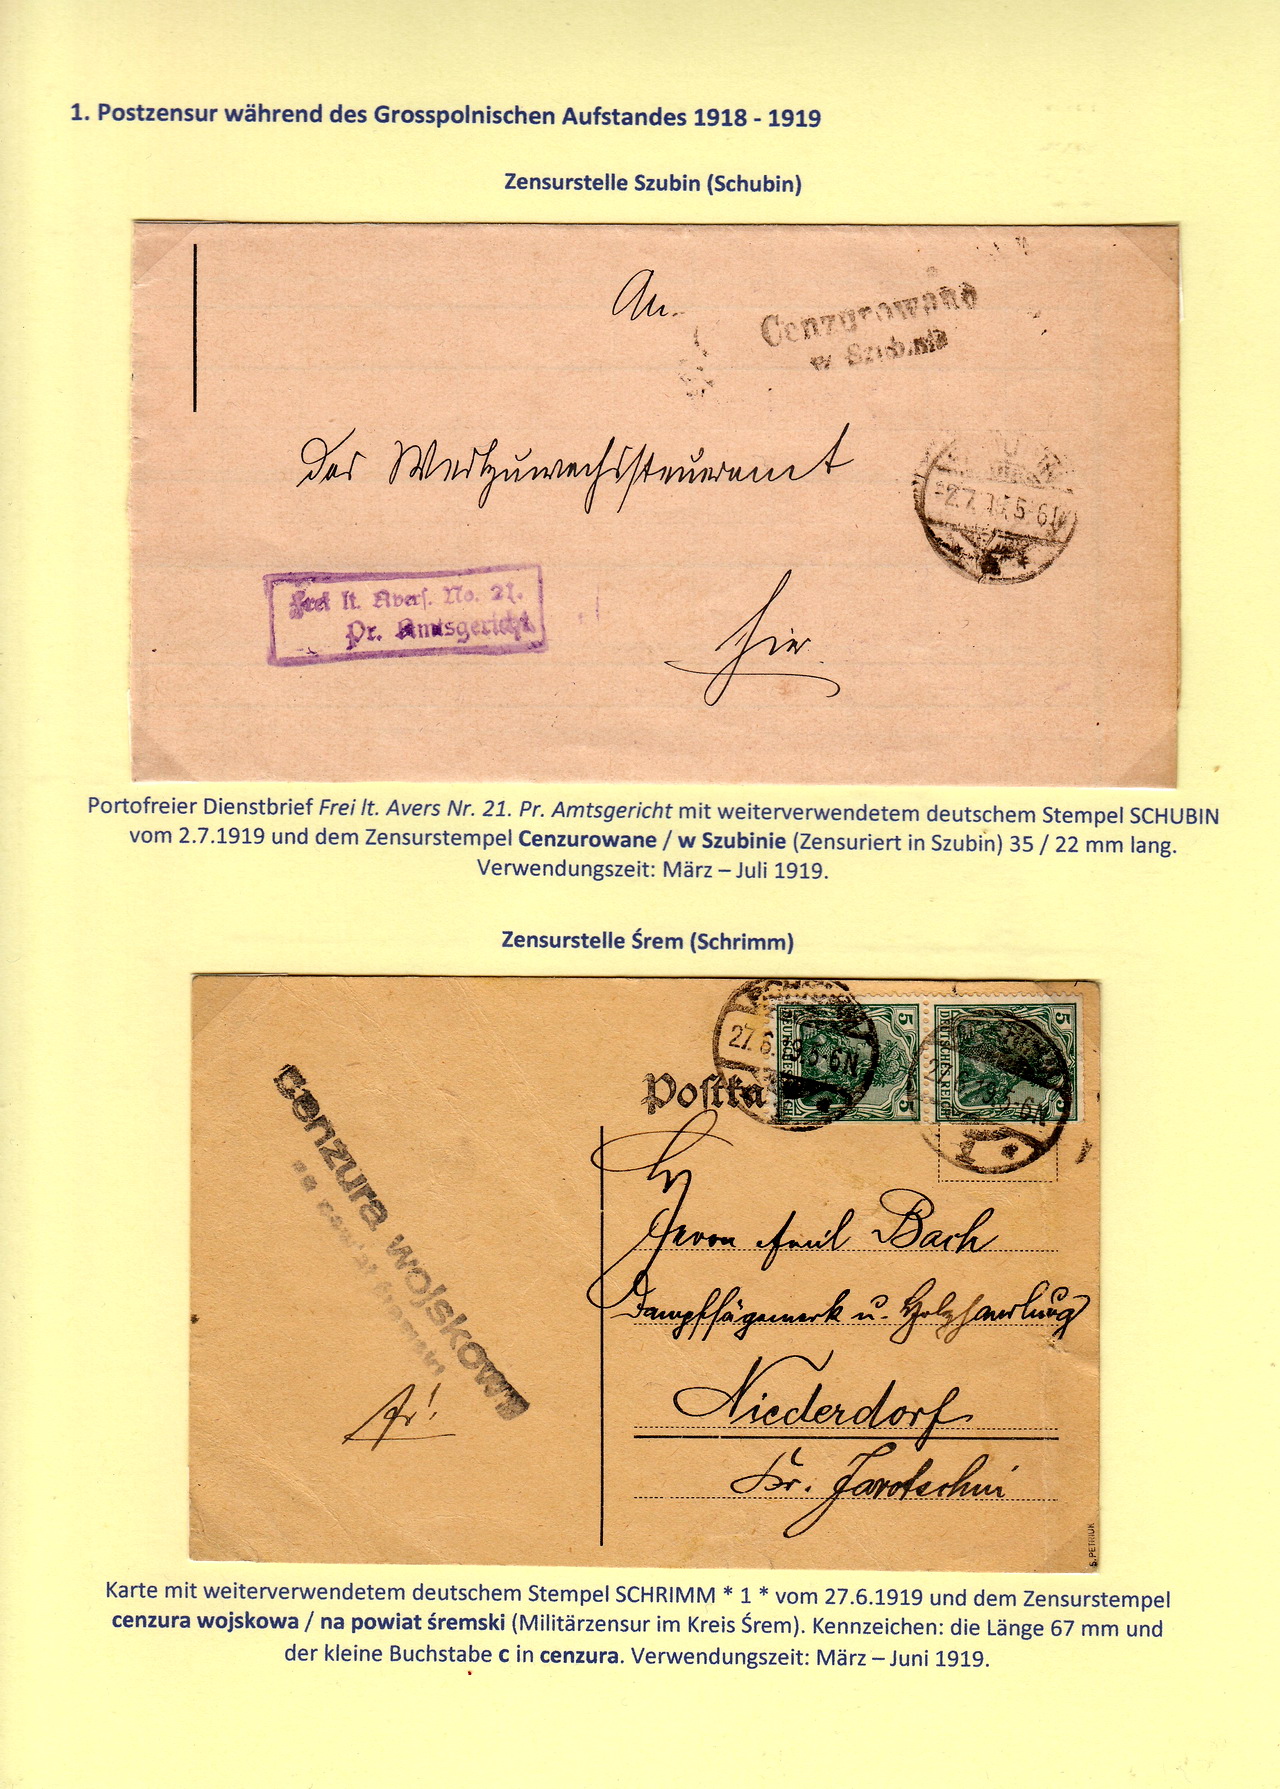 1. Postzensur während des Grosspolnischen Aufstandes 1918 - 1919
Zensurstelle Szubin (Schubin)
An
Cenzurowano
w Szubinie
das Wertzuwachssteueramt
2.7.19.5-6N
Frei lt. Avers. No. 21.
Pr. Amtsgericht
hier
Portofreier Dienstbrief Frei lt. Avers Nr. 21. Pr. Amtsgericht mit weiterverwendetem deutschem Stempel SCHUBIN
vom 2.7.1919 und dem Zensurstempel Cenzurowane / w Szubinie (Zensuriert in Szubin) 35 / 22 mm lang.
Verwendungszeit: März – Juli 1919.
Zensurstelle Śrem (Schrimm)
27.6.19.5-6N
5 5
DEUTSCHES REICH
Postka
cenzura wojskowa
na powiat śremski
Herrn Emil Bach
Dampfsägewerk u. Holzhandlung
Niederdorf
Kr. Jarotschin
S. PETRIUK
Karte mit weiterverwendetem deutschem Stempel SCHRIMM * 1 * vom 27.6.1919 und dem Zensurstempel
cenzura wojskowa / na powiat śremski (Militärzensur im Kreis Śrem). Kennzeichen: die Länge 67 mm und
der kleine Buchstabe c in cenzura. Verwendungszeit: März – Juni 1919.